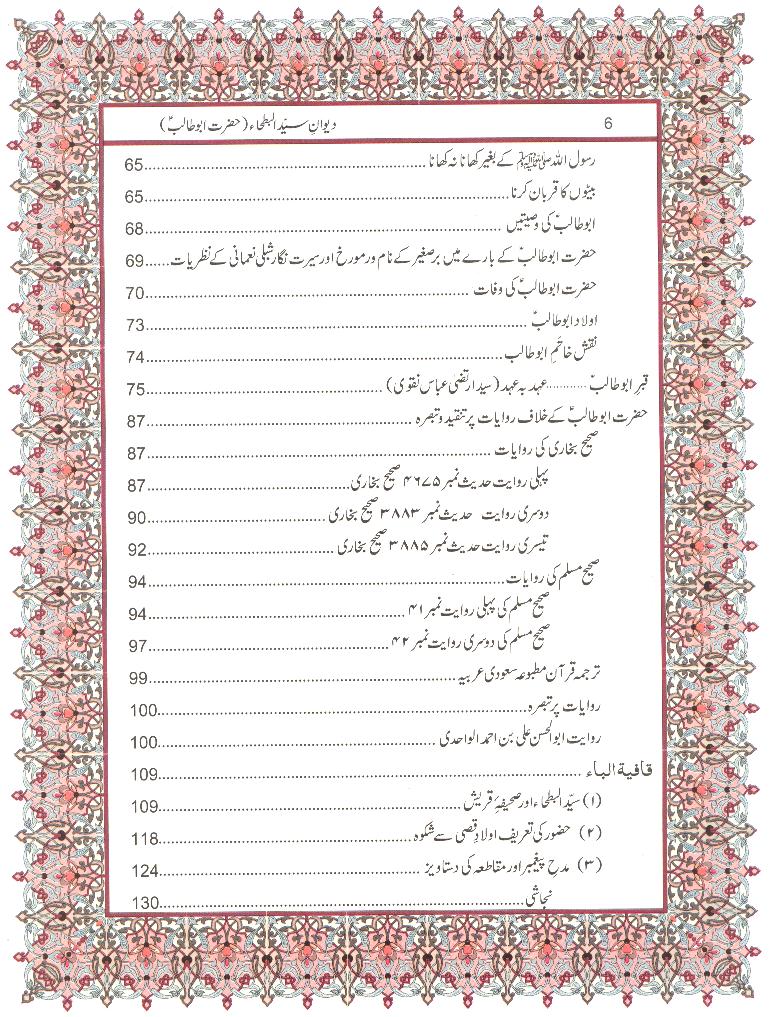 6 دیوانِ سیّد البطحاء (حضرت ابوطالبؑ)
رسول اللہ ﷺ کے بغیر کھانا نہ کھانا ........ 65
بیٹوں کا قربان کرنا ........ 65
ابوطالبؑ کی وصیتیں ........ 68
حضرت ابوطالبؑ کے بارے میں برصغیر کے نام ور مورخ اور سیرت نگار شبلی نعمانی کے نظریات ...... 69
حضرت ابوطالبؑ کی وفات ........ 70
اولاد ابوطالبؑ ........ 73
نقش خاتَمِ ابوطالب ........ 74
قبرِ ابوطالبؑ ............ عہد بہ عہد (سید ارتضی عباس نقوی) ........ 75
حضرت ابوطالبؑ کے خلاف روایات پر تنقید و تبصرہ ........ 87
صحیح بخاری کی روایات ........ 87
پہلی روایت حدیث نمبر ۴۶۷۵ صحیح بخاری ........ 87
دوسری روایت حدیث نمبر ۳۸۸۳ صحیح بخاری ........ 90
تیسری روایت حدیث نمبر ۳۸۸۵ صحیح بخاری ........ 92
صحیح مسلم کی روایات ........ 94
صحیح مسلم کی پہلی روایت نمبر ۴۱ ........ 94
صحیح مسلم کی دوسری روایت نمبر ۴۲ ........ 97
ترجمہ قرآن مطبوعہ سعودی عربیہ ........ 99
روایات پر تبصرہ ........ 100
روایت ابوالحسن علی بن احمد الواحدی ........ 100
قافية الباء ........ 109
(۱) سیّد البطحاء اور صحیفۂ قریش ........ 109
(۲) حضور کی تعریف اولادِ قصی سے شکوہ ........ 118
(۳) مدحِ پیغمبر اور مقاطعہ کی دستاویز ........ 124
نجاشی ........ 130